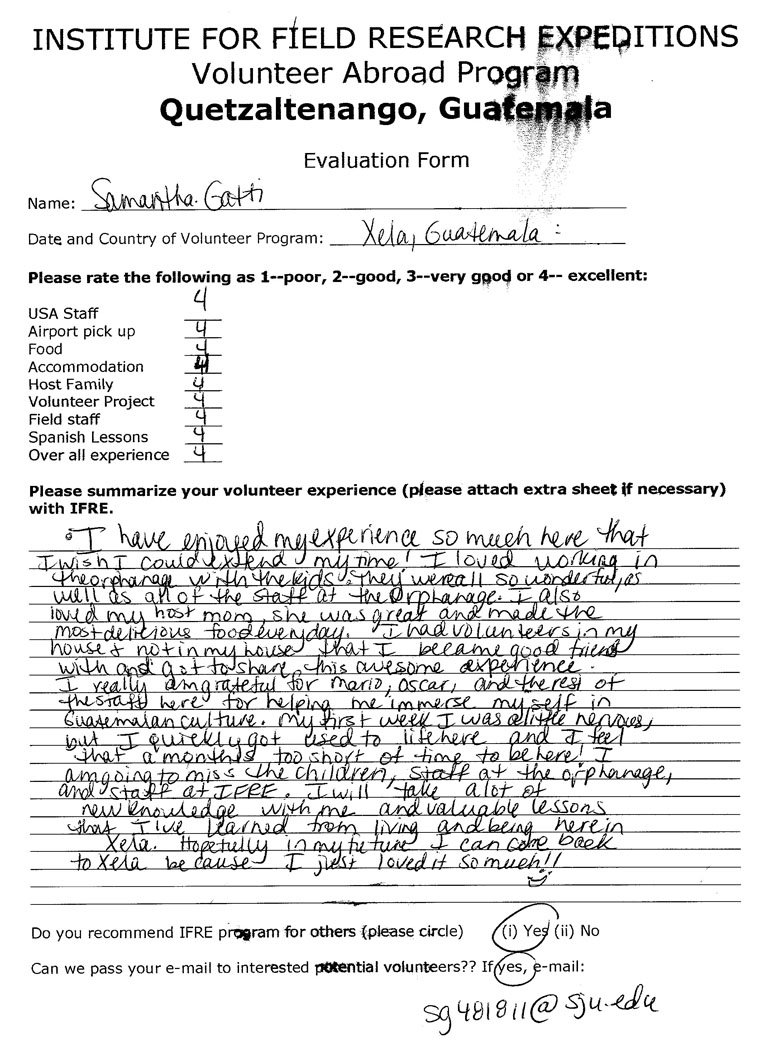 INSTITUTE FOR FIELD RESEARCH EXPEDITIONS
Volunteer Abroad Program
Quetzaltenango, Guatemala
Evaluation Form
Name: Samantha Gatti
Date and Country of Volunteer Program: Xela, Guatemala
Please rate the following as 1--poor, 2--good, 3--very good or 4-- excellent:
USA Staff 4
Airport pick up 4
Food 4
Accommodation 4
Host Family 4
Volunteer Project 4
Field staff 4
Spanish Lessons 4
Over all experience 4
Please summarize your volunteer experience (please attach extra sheet if necessary)
with IFRE.
I have enjoyed my experience so much here that
I wish I could extend my time! I loved working in
the orphanage with the kids. They were all so wonderful, as
well as all of the staff at the orphanage. I also
loved my host mom, she was great and made the
most delicious food everyday. I had volunteers in my
house & not in my house that I became good friend
with and got to share this awesome experience.
I really am grateful for Mario, Oscar, and the rest of
the staff here for helping me immerse myself in
Guatemalan culture. My first week I was a little nervous,
but I quickly got used to life here and I feel
that a month is too short of time to be here! I
am going to miss the children, staff at the orphanage,
and staff at IFRE. I will take alot of
new knowledge with me and valuable lessons
that I've learned from living and being here in
Xela. Hopefully in my future I can come back
to Xela because I just loved it so much!!
Do you recommend IFRE program for others (please circle) (i) Yes (ii) No
Can we pass your e-mail to interested potential volunteers?? If yes, e-mail:
sg481811@sju.edu